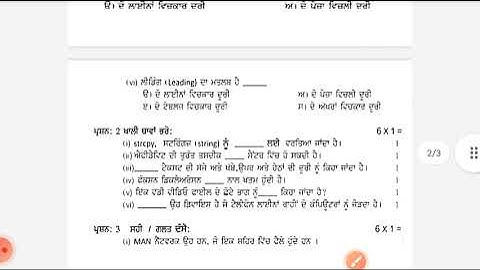 ੳ) ਦੋ ਲਾਈਨਾਂ ਵਿਚਕਾਰ ਦੂਰੀ ਅ) ਦੋ ਪੇਜ਼ਾ ਵਿਚਲੀ ਦੂਰੀ
(vi) ਲੀਡਿੰਗ (Leading) ਦਾ ਮਤਲਬ ਹੈ ______
ੳ) ਦੋ ਲਾਈਨਾਂ ਵਿਚਕਾਰ ਦੂਰੀ ਅ) ਦੋ ਪੇਜ਼ਾ ਵਿਚਲੀ ਦੂਰੀ
ੲ) ਦੋ ਟੇਬਲਜ਼ ਵਿਚਕਾਰ ਦੂਰੀ ਸ) ਦੋ ਅੱਖਰਾਂ ਵਿਚਕਾਰ ਦੂਰੀ
ਪ੍ਰਸ਼ਨ: 2 ਖਾਲੀ ਥਾਵਾਂ ਭਰੋ: 6 X 1 =
(i) strcpy, ਸਟਰਿੰਗਜ਼ (string) ਨੂੰ ______ ਲਈ ਵਰਤਿਆ ਜਾਂਦਾ ਹੈ। 1
(ii) ਐਫੀਡੇਵਿਟ ਦੀ ਤੁਰੰਤ ਤਸਦੀਕ ____ ਸੈਂਟਰ ਵਿੱਚ ਹੋ ਸਕਦੀ ਹੈ। 1
(iii)_____ ਟੈਕਸਟ ਦੀ ਸੱਜੇ ਅਤੇ ਖੱਬੇ,ਉਪਰ ਅਤੇ ਹੇਠਾਂ ਦੀ ਦੂਰੀ ਨੂੰ ਕਿਹਾ ਜਾਂਦਾ ਹੈ। 1
(iv) ਫੰਕਸ਼ਨ ਡਿਕਲੇਅਰੇਸ਼ਨ ____ ਨਾਲ ਖਤਮ ਹੁੰਦੀ ਹੈ। 1
(v) ਇੱਕ ਵੱਡੀ ਵੀਡਿਓ ਫਾਈਲ ਦੇ ਛੋਟੇ ਭਾਗ ਨੂੰ____ ਕਿਹਾ ਜਾਂਦਾ ਹੈ? 1
(vi) ______ ਉਹ ਡਿਵਾਇਸ ਹੈ ਜੋ ਟੈਲੀਫੋਨ ਲਾਈਨਾਂ ਰਾਹੀਂ ਦੋ ਕੰਪਿਊਟਰਾਂ ਨੂੰ ਜੋੜਦਾ ਹੈ। 1
ਪ੍ਰਸ਼ਨ: 3 ਸਹੀ / ਗਲਤ ਦੱਸੋ: 6 X 1 =
(i) MAN ਨੈਟਵਰਕ ਉਹ ਹਨ, ਜੋ ਇਕ ਸ਼ਹਿਰ ਵਿੱਚ ਫੈਲੇ ਹੁੰਦੇ ਹਨ । 1
2/3